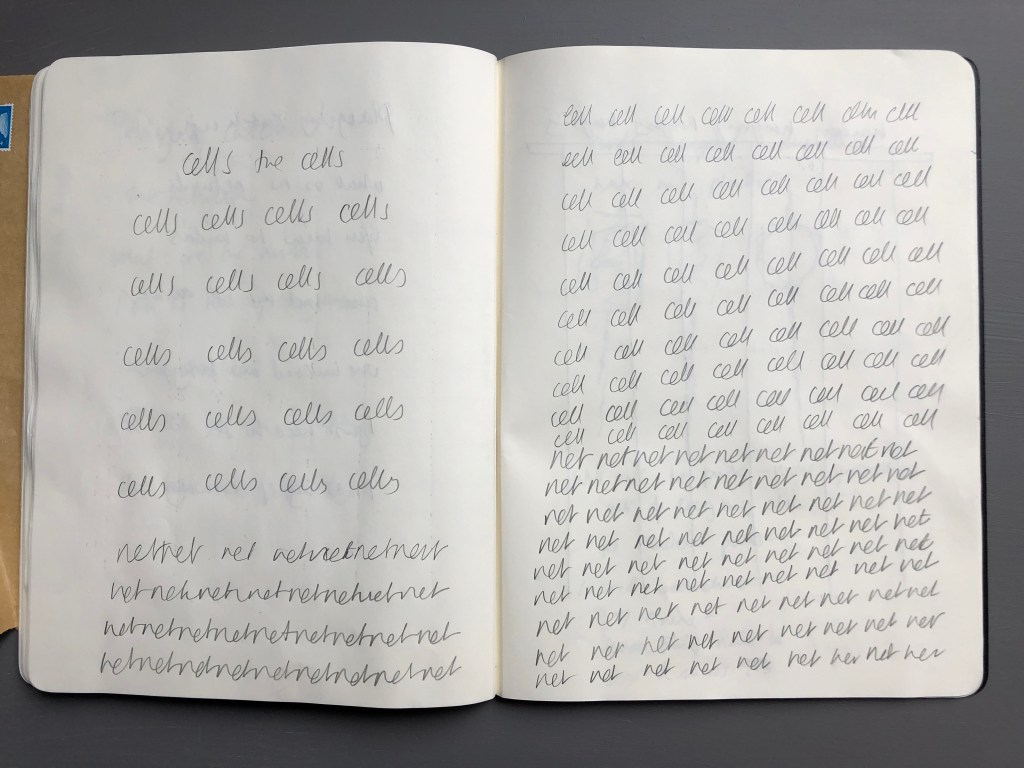 cells the cells
cells cells cells cells
cells cells cells cells
cells cells cells cells
cells cells cells cells
cells cells cells cells
netnet net netnetnetnet
netnetnetnetnetnetnetnet
netnetnetnetnetnetnetnet
netnetnetnetnetnetnetnet
cell cell cell cell cell cell cell cell
cell cell cell cell cell cell cell cell
cell cell cell cell cell cell cell cell
cell cell cell cell cell cell cell cell
cell cell cell cell cell cell cell cell
cell cell cell cell cell cell cell cell
cell cell cell cell cell cell cell cell
cell cell cell cell cell cell cell cell
cell cell cell cell cell cell cell cell
cell cell cell cell cell cell cell cell
net net net net net net net net net
net net net net net net net net net
net net net net net net net net net
net net net net net net net net net
net net net net net net net net net
net net net net net net net net net
net net net net net net net net net
net net net net net net net net net
net net net net net net net net net